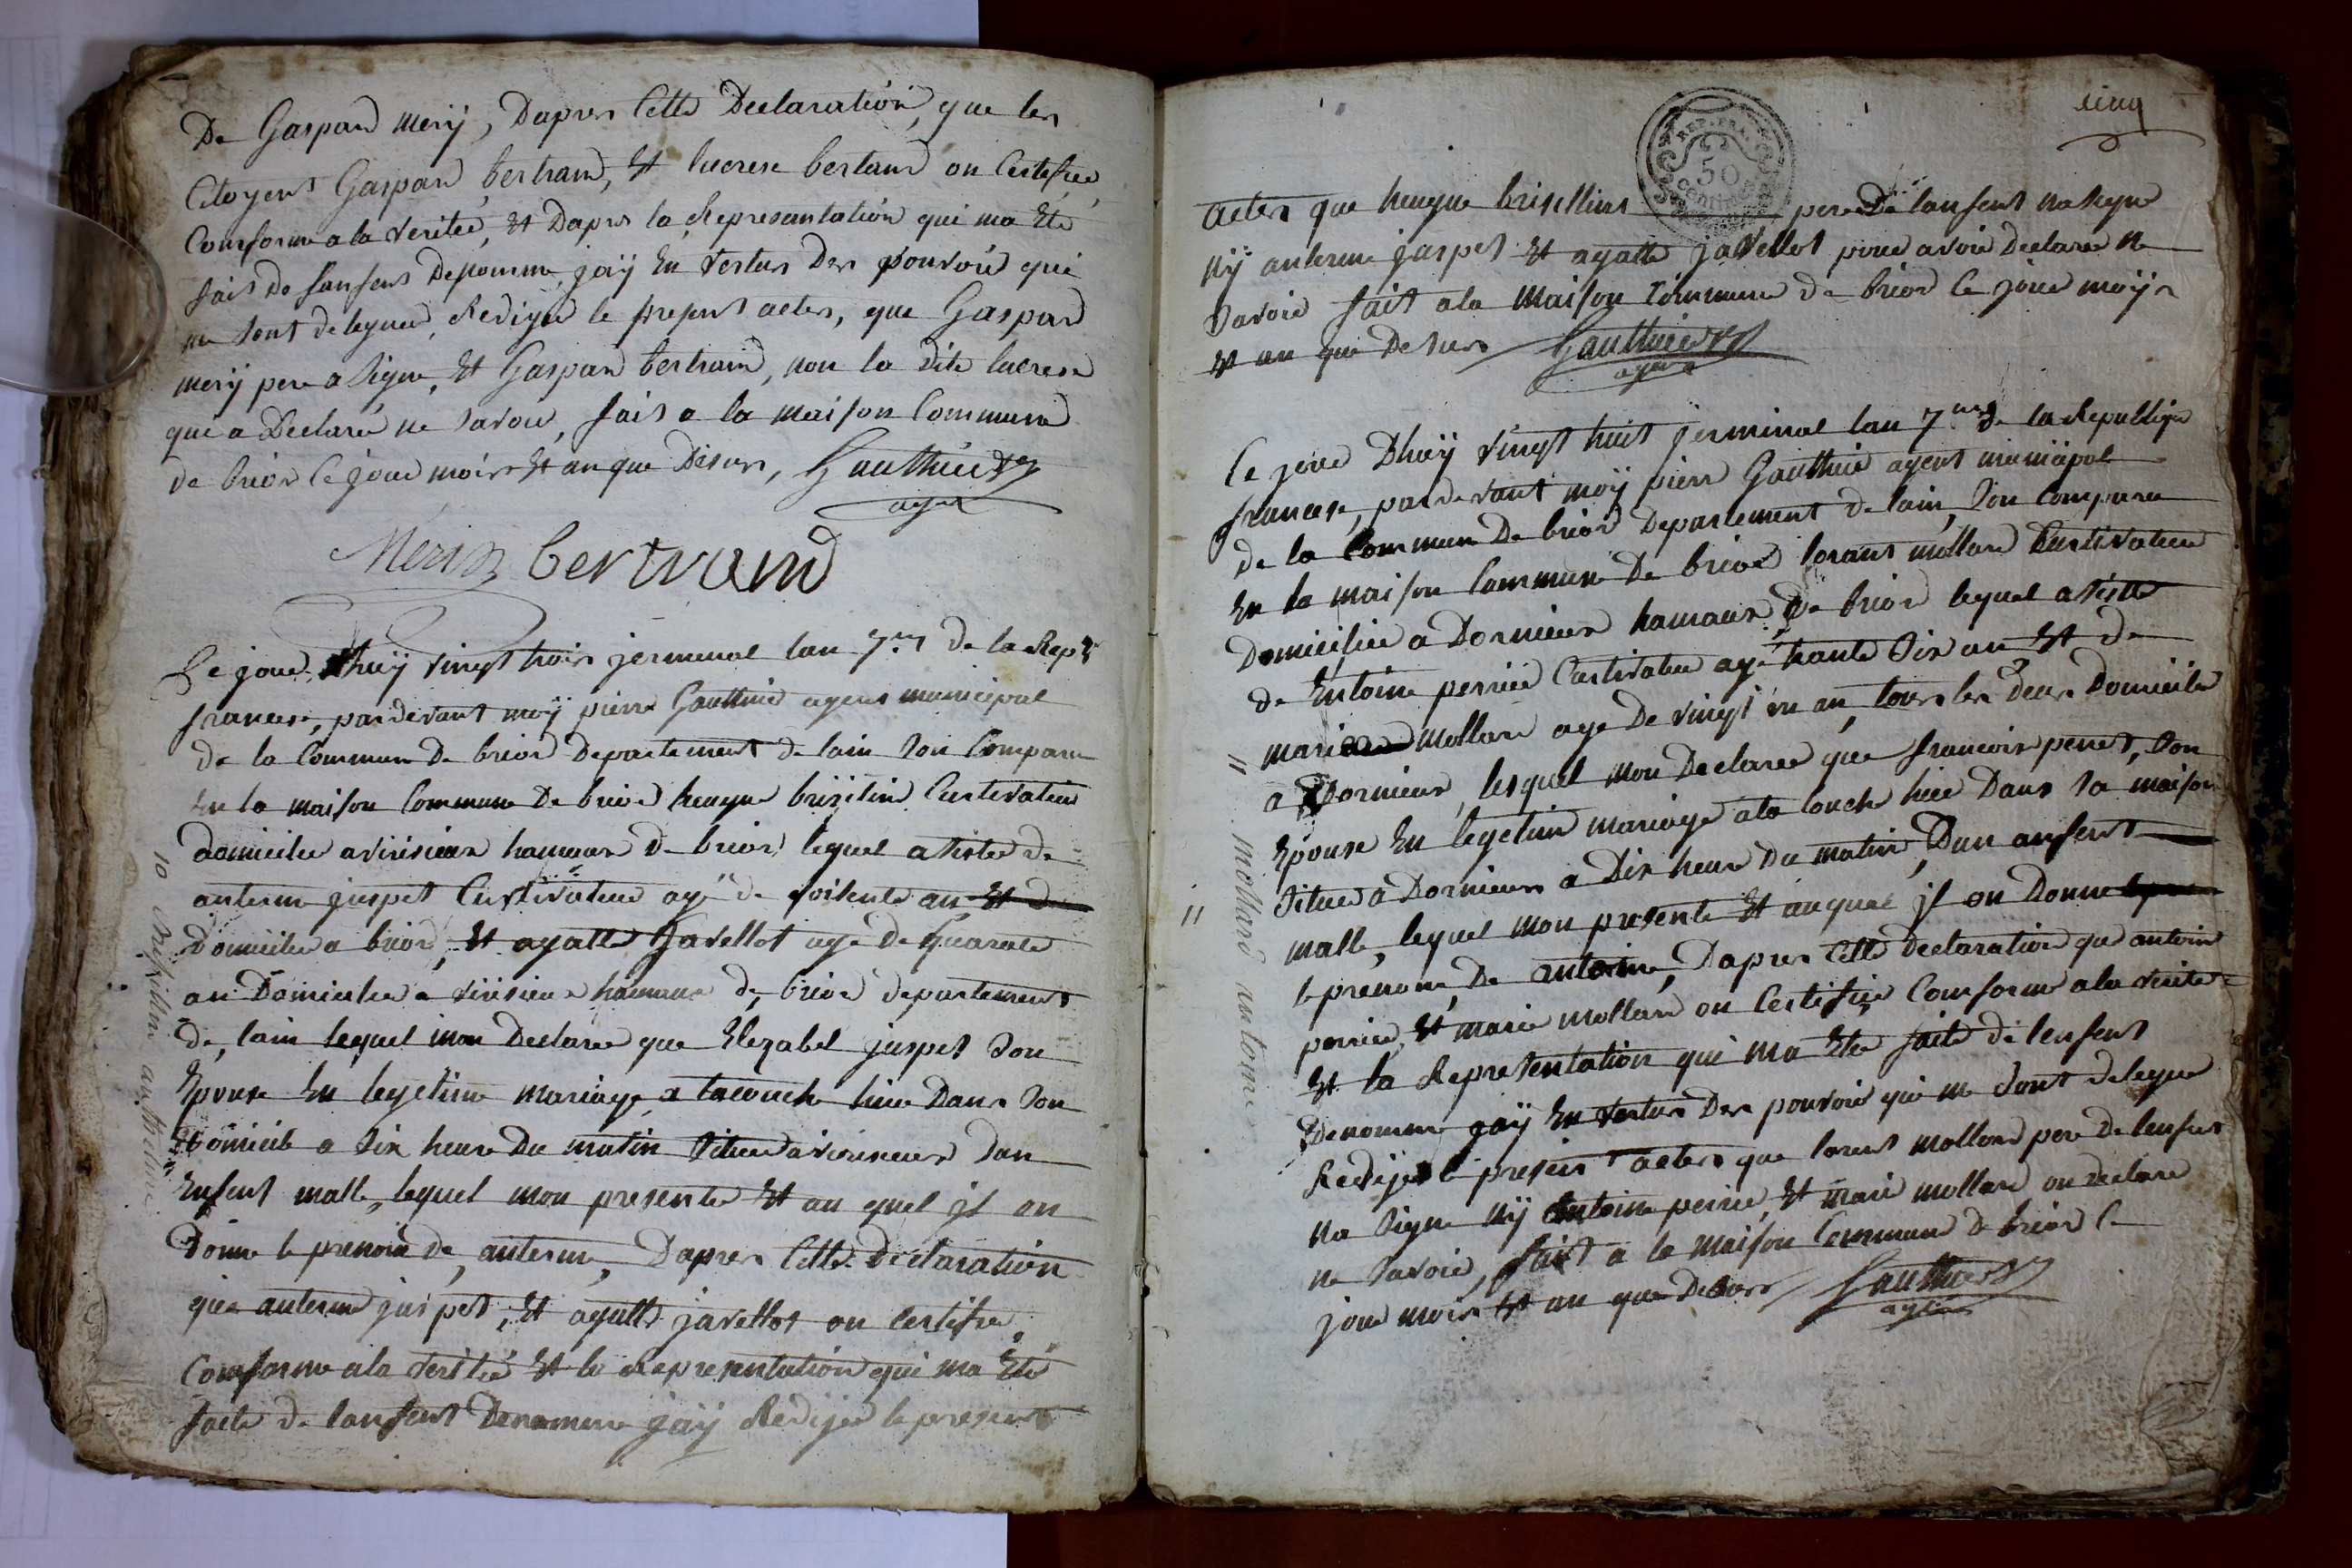 De Gaspard merÿ, Dapres Cette Declaration, que les
Citoyent Gaspard bertrand, Et lucrese bertrand on Certifiee
Conforme a la veritee, Et Dapres la Representation qui ma Ete
fait de lanfent Denomme, jaÿ En vertus Des pouvoir qui
me sont deleguee, Redigee le present actes, que Gaspard
merÿ pere a signe, Et Gaspard bertrand, non la dite lucrese
que a Declaré ne savoir, fait a la maison Commune
de brior le jour moir Et an que Desus, Gauthier
agent
Meri bertrand
Le jour Dhuÿ vingt trois jerminal lan 7me de la Rep
francese, par devant moÿ pierre Gauthier agent municipal
de la Commun De brior Departement de lain son Comparu
En la maison Commune De brior heugne brizilin Cultivateur
domicilie a virisieux hamaux De brior lequel assistee de
anterme jaspet Cultivateur agé de soisente an Et de
Domicilie a brior, Et agatte Javellot age De quarante
an Domicilie a virisieux hamaux de brior departement
de lain lequel mon Declaree que Elezabet jaspet son
Epouse En legetime mariage a lacouche hier Dans son
Domicile a six heure Du matin situee a virisieux Dun
Enfent malle, lequel mon presente Et au quel jl on
Donne le prenom de anterme, Dapres Cette declaration
que anterme jaspet, Et agatte javellot on certifiee
Conforme a la veritée Et la Representation qui ma Eté
faite de lanfent Denomme jaÿ Redigee le present
10 brisillin anthelme
cinq
REP. FRA.
50
Centimes
actes que heugne brisillins pere De lanfent na signe
nÿ anterme jaspet Et agatte javellot pour avoir Declaree ne
savoir fait a la maison Commune de brior le jour moÿs
Et an que Desurs Gauthier
agent
Le jour Dhuÿ vingt huit jerminal lan 7me de la Republiqe
francese, par devant moÿ pierre Gauthier agent municipal
de la Commun De brior Departement de lain, son Comparu
En la maison Commune De brior lorant mollard Cultivateur
Domicilie a Dornieux hamaux De brior lequel assiste
de Entoine perrier Cultivateur agé trante six an Et de
marie mollard age De vingt un an, tous les deux Domicilie
a Dornieux, lesquel mon Declaree que francoise perret, son
Epouse En legetime mariage a la couche hier Dans sa maison
situee a Dornieux a Dix heure Du matin, Dun anfent
malle, lequel mon presente Et auquel jl on Donne
le prenom De antoine, Dapres Cette declaration que antoine
perrier, Et marie mollard on Certifiee Conforme a la verite
Et la Representation qui ma Ete faite de lenfent
Denomme jaÿ En vertus Des pouvoir qui me sont delegue
Redigee le present actes que lorent mollard pere De lenfent
na signe nÿ Entoine perrier, Et marie mollard on declare
ne savoir, fait a la maison Commune de brior le
jour moir Et an que Desurs Gauthier
agent
11 mollard antoine
11